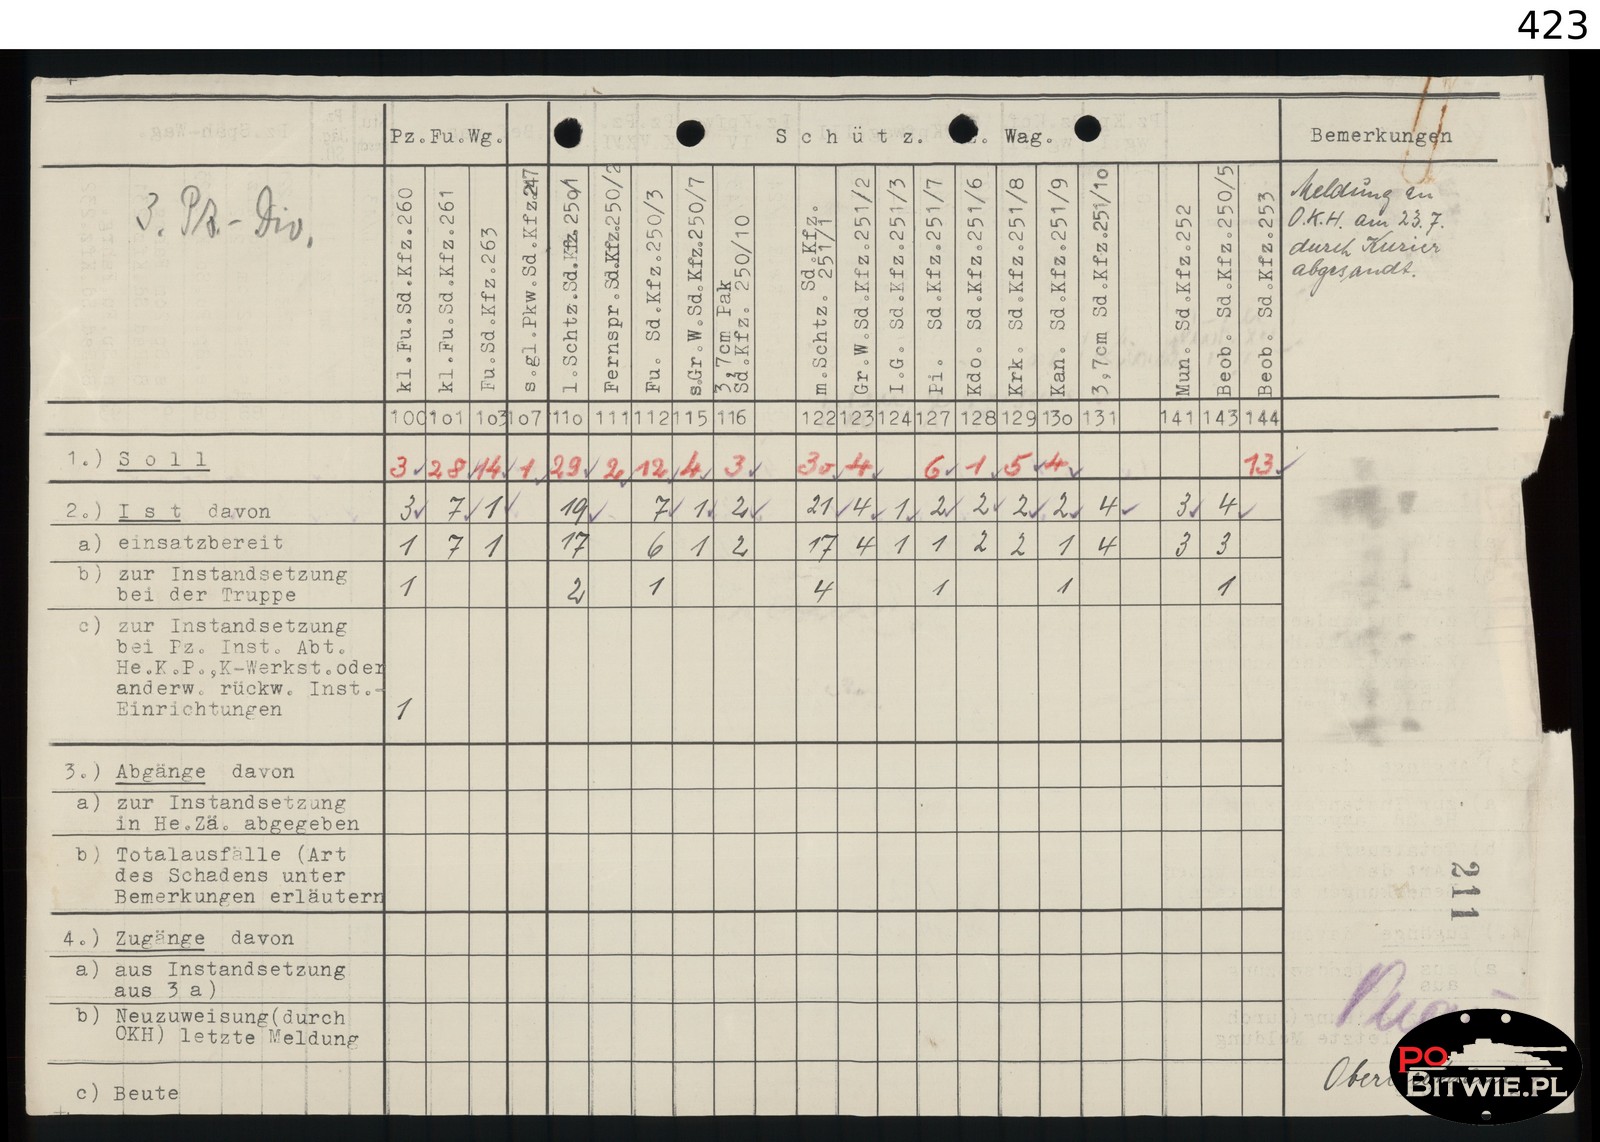 423
Pz.Fu.Wg.
Schütz. Wag.
Bemerkungen
3. Pz.-Div.
kl.Fu.Sd.Kfz.260
kl.Fu.Sd.Kfz.261
Fu.Sd.Kfz.263
s.gl.Pkw.Sd.Kfz.247
l.Schtz.Sd.Kfz.250/1
Fernspr.Sd.Kfz.250/2
Fu. Sd.Kfz.250/3
s.Gr.W.Sd.Kfz.250/7
3,7cm Pak
Sd.Kfz. 250/10
m.Schtz. Sd.Kfz.
251/1
Gr.W.Sd.Kfz.251/2
I.G. Sd.Kfz.251/3
Pi. Sd.Kfz.251/7
Kdo. Sd.Kfz.251/6
Krk. Sd.Kfz.251/8
Kan. Sd.Kfz.251/9
3,7cm Sd.Kfz.251/10
Mun. Sd.Kfz.252
Beob. Sd.Kfz.250/5
Beob. Sd.Kfz.253
Meldung an
O.K.H. am 23.7.
durch Kurier
abgesandt.
100 101 103 107 110 111 112 115 116 122 123 124 127 128 129 130 131 141 143 144
1.) Soll 3 28 14 1 29 2 12 4 3 30 4 6 1 5 4 13
2.) Ist davon 3 7 1 19 7 1 2 21 4 1 2 2 2 2 4 3 4
a) einsatzbereit 1 7 1 17 6 1 2 17 4 1 1 2 2 1 4 3 3
b) zur Instandsetzung
bei der Truppe 1 2 1 4 1 1 1
c) zur Instandsetzung
bei Pz. Inst. Abt.
He.K.P.,K-Werkst.oder
anderw. rückw. Inst.-
Einrichtungen 1
3.) Abgänge davon
a) zur Instandsetzung
in He.Zä. abgegeben
b) Totalausfälle (Art
des Schadens unter
Bemerkungen erläutern
211
4.) Zugänge davon
a) aus Instandsetzung
aus 3 a)
b) Neuzuweisung(durch
OKH) letzte Meldung
c) Beute
PO
BITWIE.PL